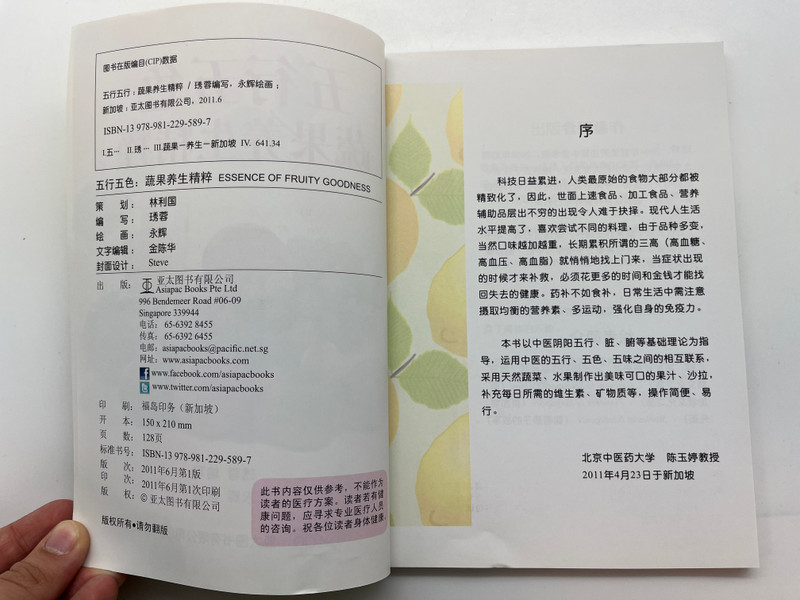 图书在版编目(CIP)数据
五行五行:蔬果养生精粹 / 琇蓉编写,永辉绘画;
新加坡:亚太图书有限公司, 2011.6
ISBN-13 978-981-229-589-7
I五… II.琇… III.蔬果一养生一新加坡 IV. 641.34
五行五色:蔬果养生精粹 ESSENCE OF FRUITY GOODNESS
策 划: 林利国
编 写: 琇蓉
绘 画: 永辉
文字编辑: 金陈华
封面设计: Steve
出 版: 亚太图书有限公司
Asiapac Books Pte Ltd
996 Bendemeer Road #06-09
Singapore 339944
电话: 65-6392 8455
传真: 65-6392 6455
电邮: asiapacbooks@pacific.net.sg
网址: www.asiapacbooks.com
f www.facebook.com/asiapacbooks
t www.twitter.com/asiapacbooks
印 刷: 福岛印务(新加坡)
开 本: 150 x 210 mm
页 数: 128页
标准书号: ISBN-13 978-981-229-589-7
版 次: 2011年6月第1版
印 次: 2011年6月第1次印刷
版 权: © 亚太图书有限公司
版权所有●请勿翻版
此书内容仅供参考,不能作为
读者的医疗方案。读者若有健
康问题,应寻求专业医疗人员
的咨询。祝各位读者身体健康。
序
科技日益累进,人类最原始的食物大部分都被
精致化了,因此,世面上速食品、加工食品、营养
辅助品层出不穷的出现令人难于抉择。现代人生活
水平提高了,喜欢尝试不同的料理,由于品种多变,
当然口味越加越重,长期累积所谓的三高(高血糖、
高血压、高血脂)就悄悄地找上门来,当症状出现
的时候才来补救,必须花更多的时间和金钱才能找
回失去的健康。药补不如食补,日常生活中需注意
摄取均衡的营养素、多运动,强化自身的免疫力。
本书以中医阴阳五行、脏、腑等基础理论为指
导,运用中医的五行、五色、五味之间的相互联系,
采用天然蔬菜、水果制作出美味可口的果汁、沙拉,
补充每日所需的维生素、矿物质等,操作简便、易
行。
北京中医药大学 陈玉婷教授
2011年4月23日于新加坡